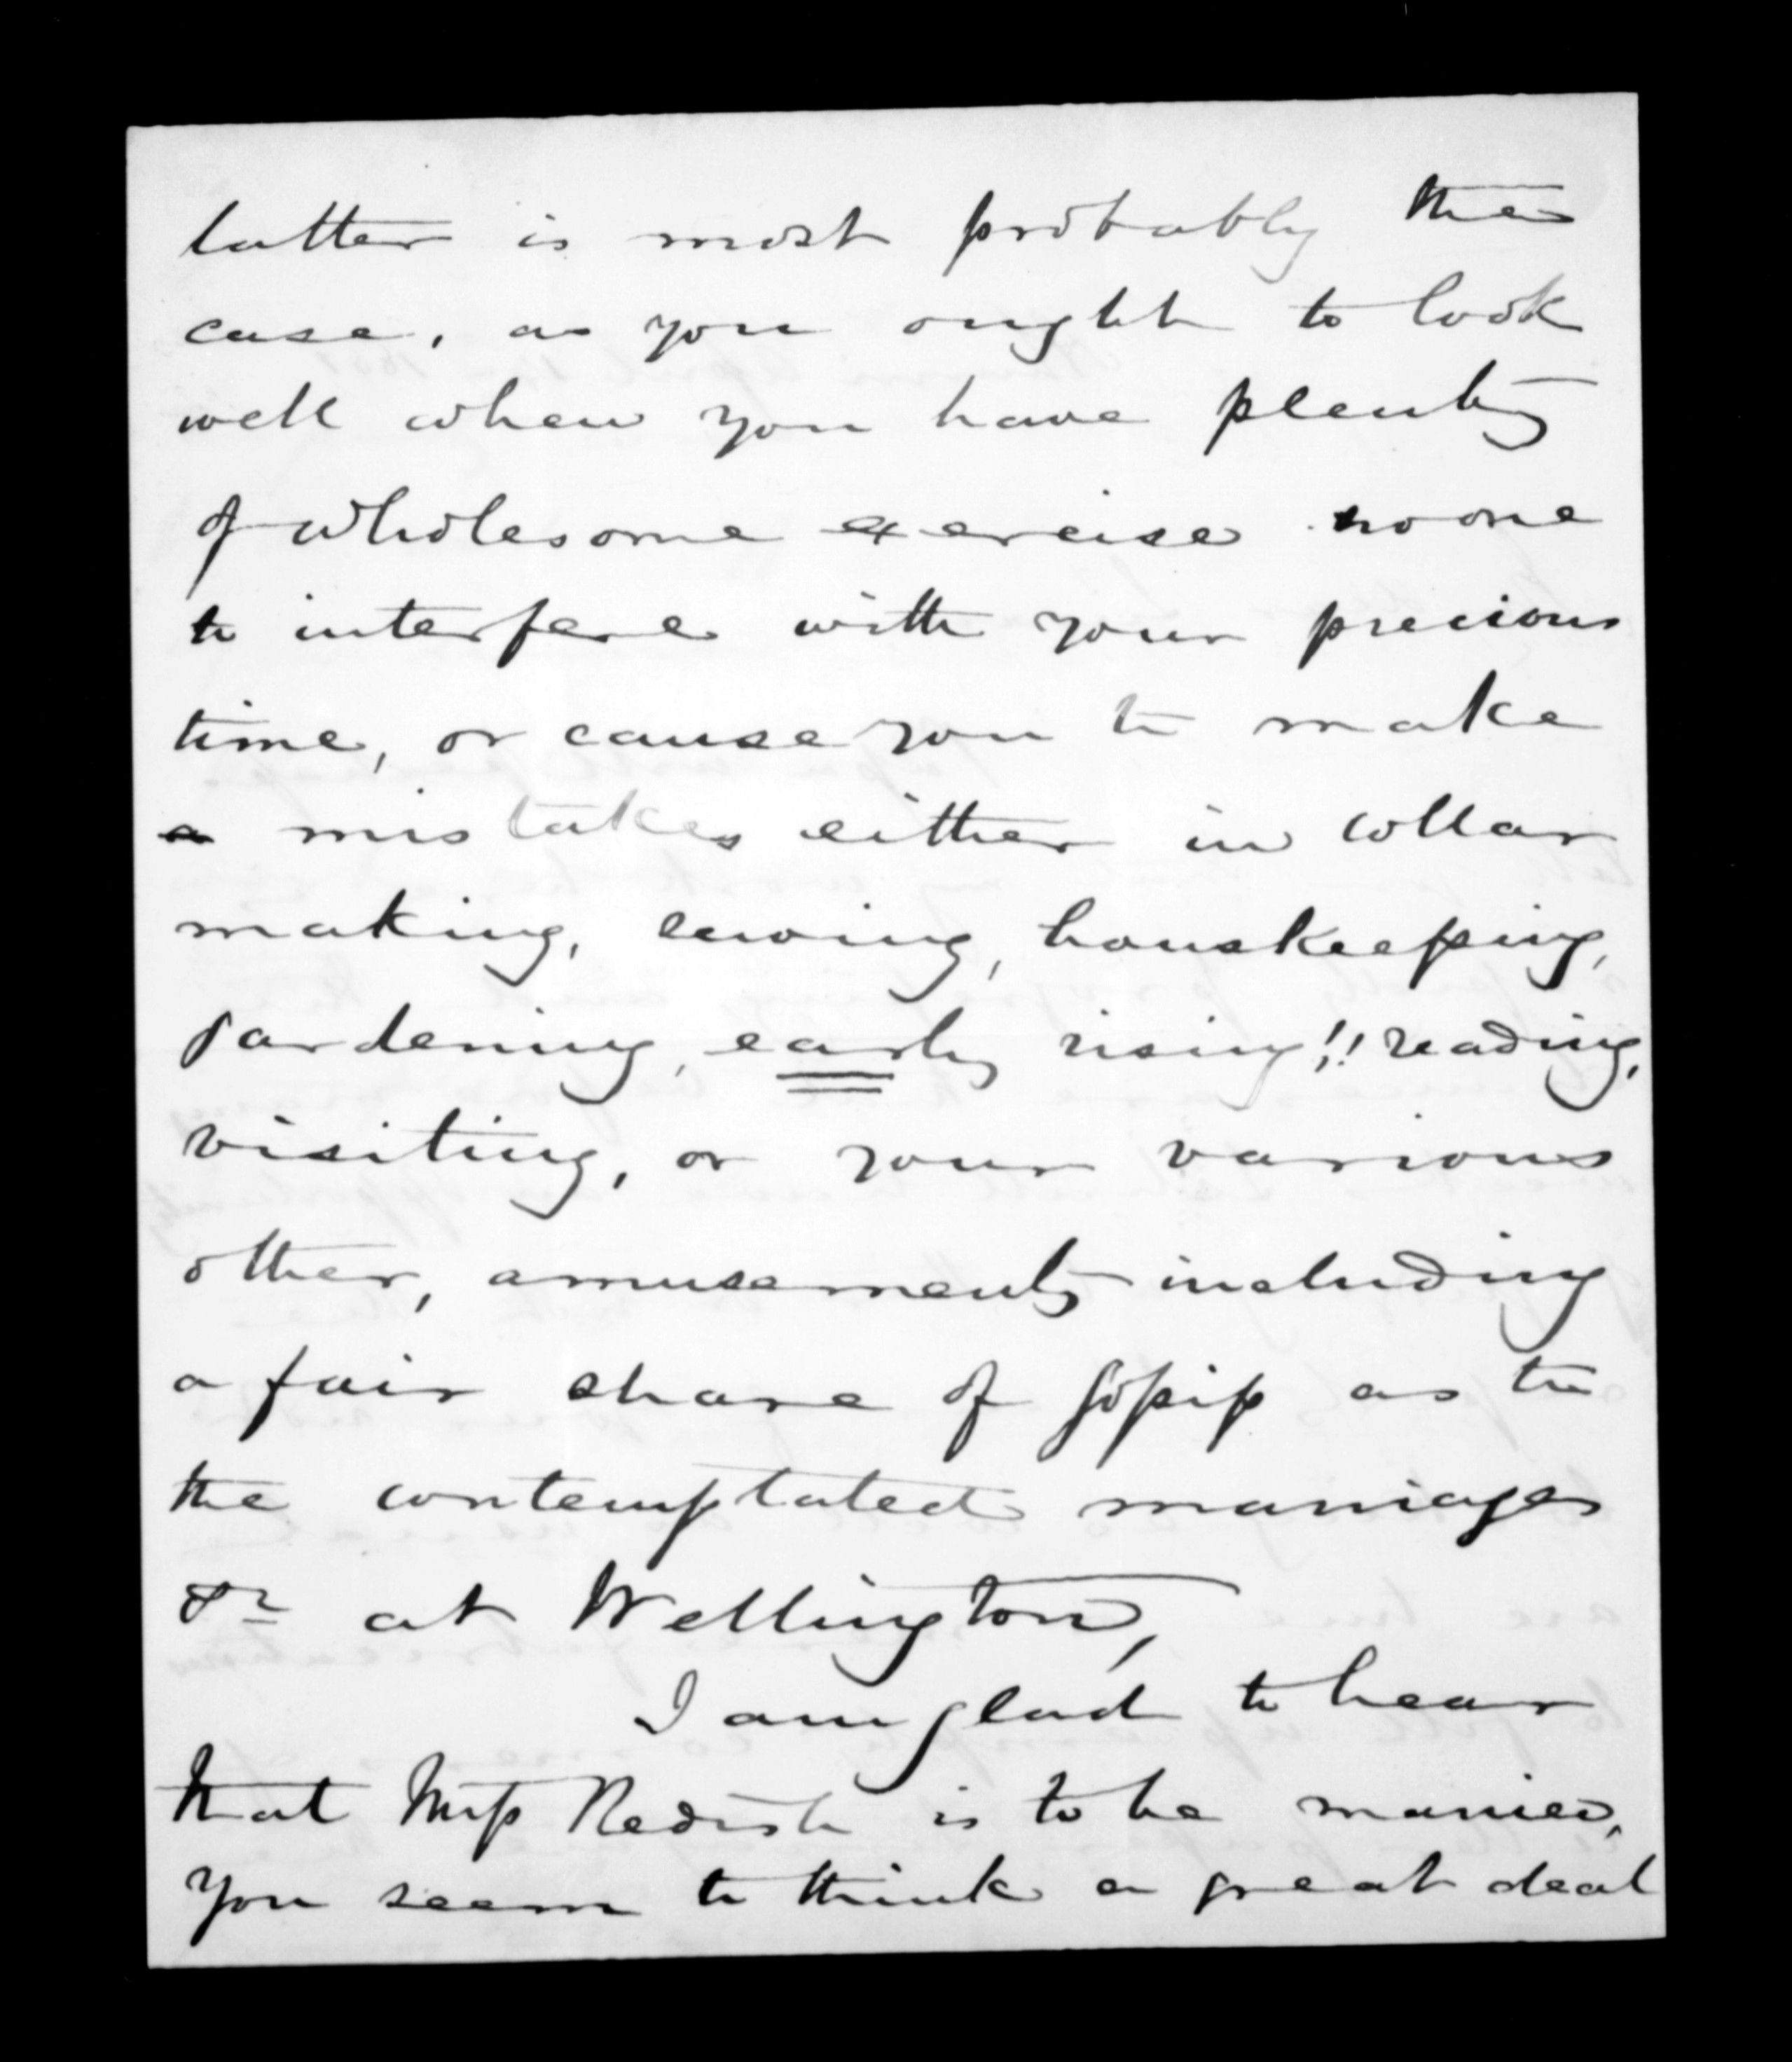 latter is most probably the
case, as you ought to look
well when you have plenty
of wholesome exercise no one
to interfere with your precious
time, or cause you to make
mistakes either in collar
making, sewing, houskeeping,
gardening, early rising!! reading,
visiting, or your various
other, amusements including
a fair share of gossip as to
the contemplated marriages
&c at Wellington,
I am glad to hear
that Miss Redish is to be married,
You seem to think a great deal